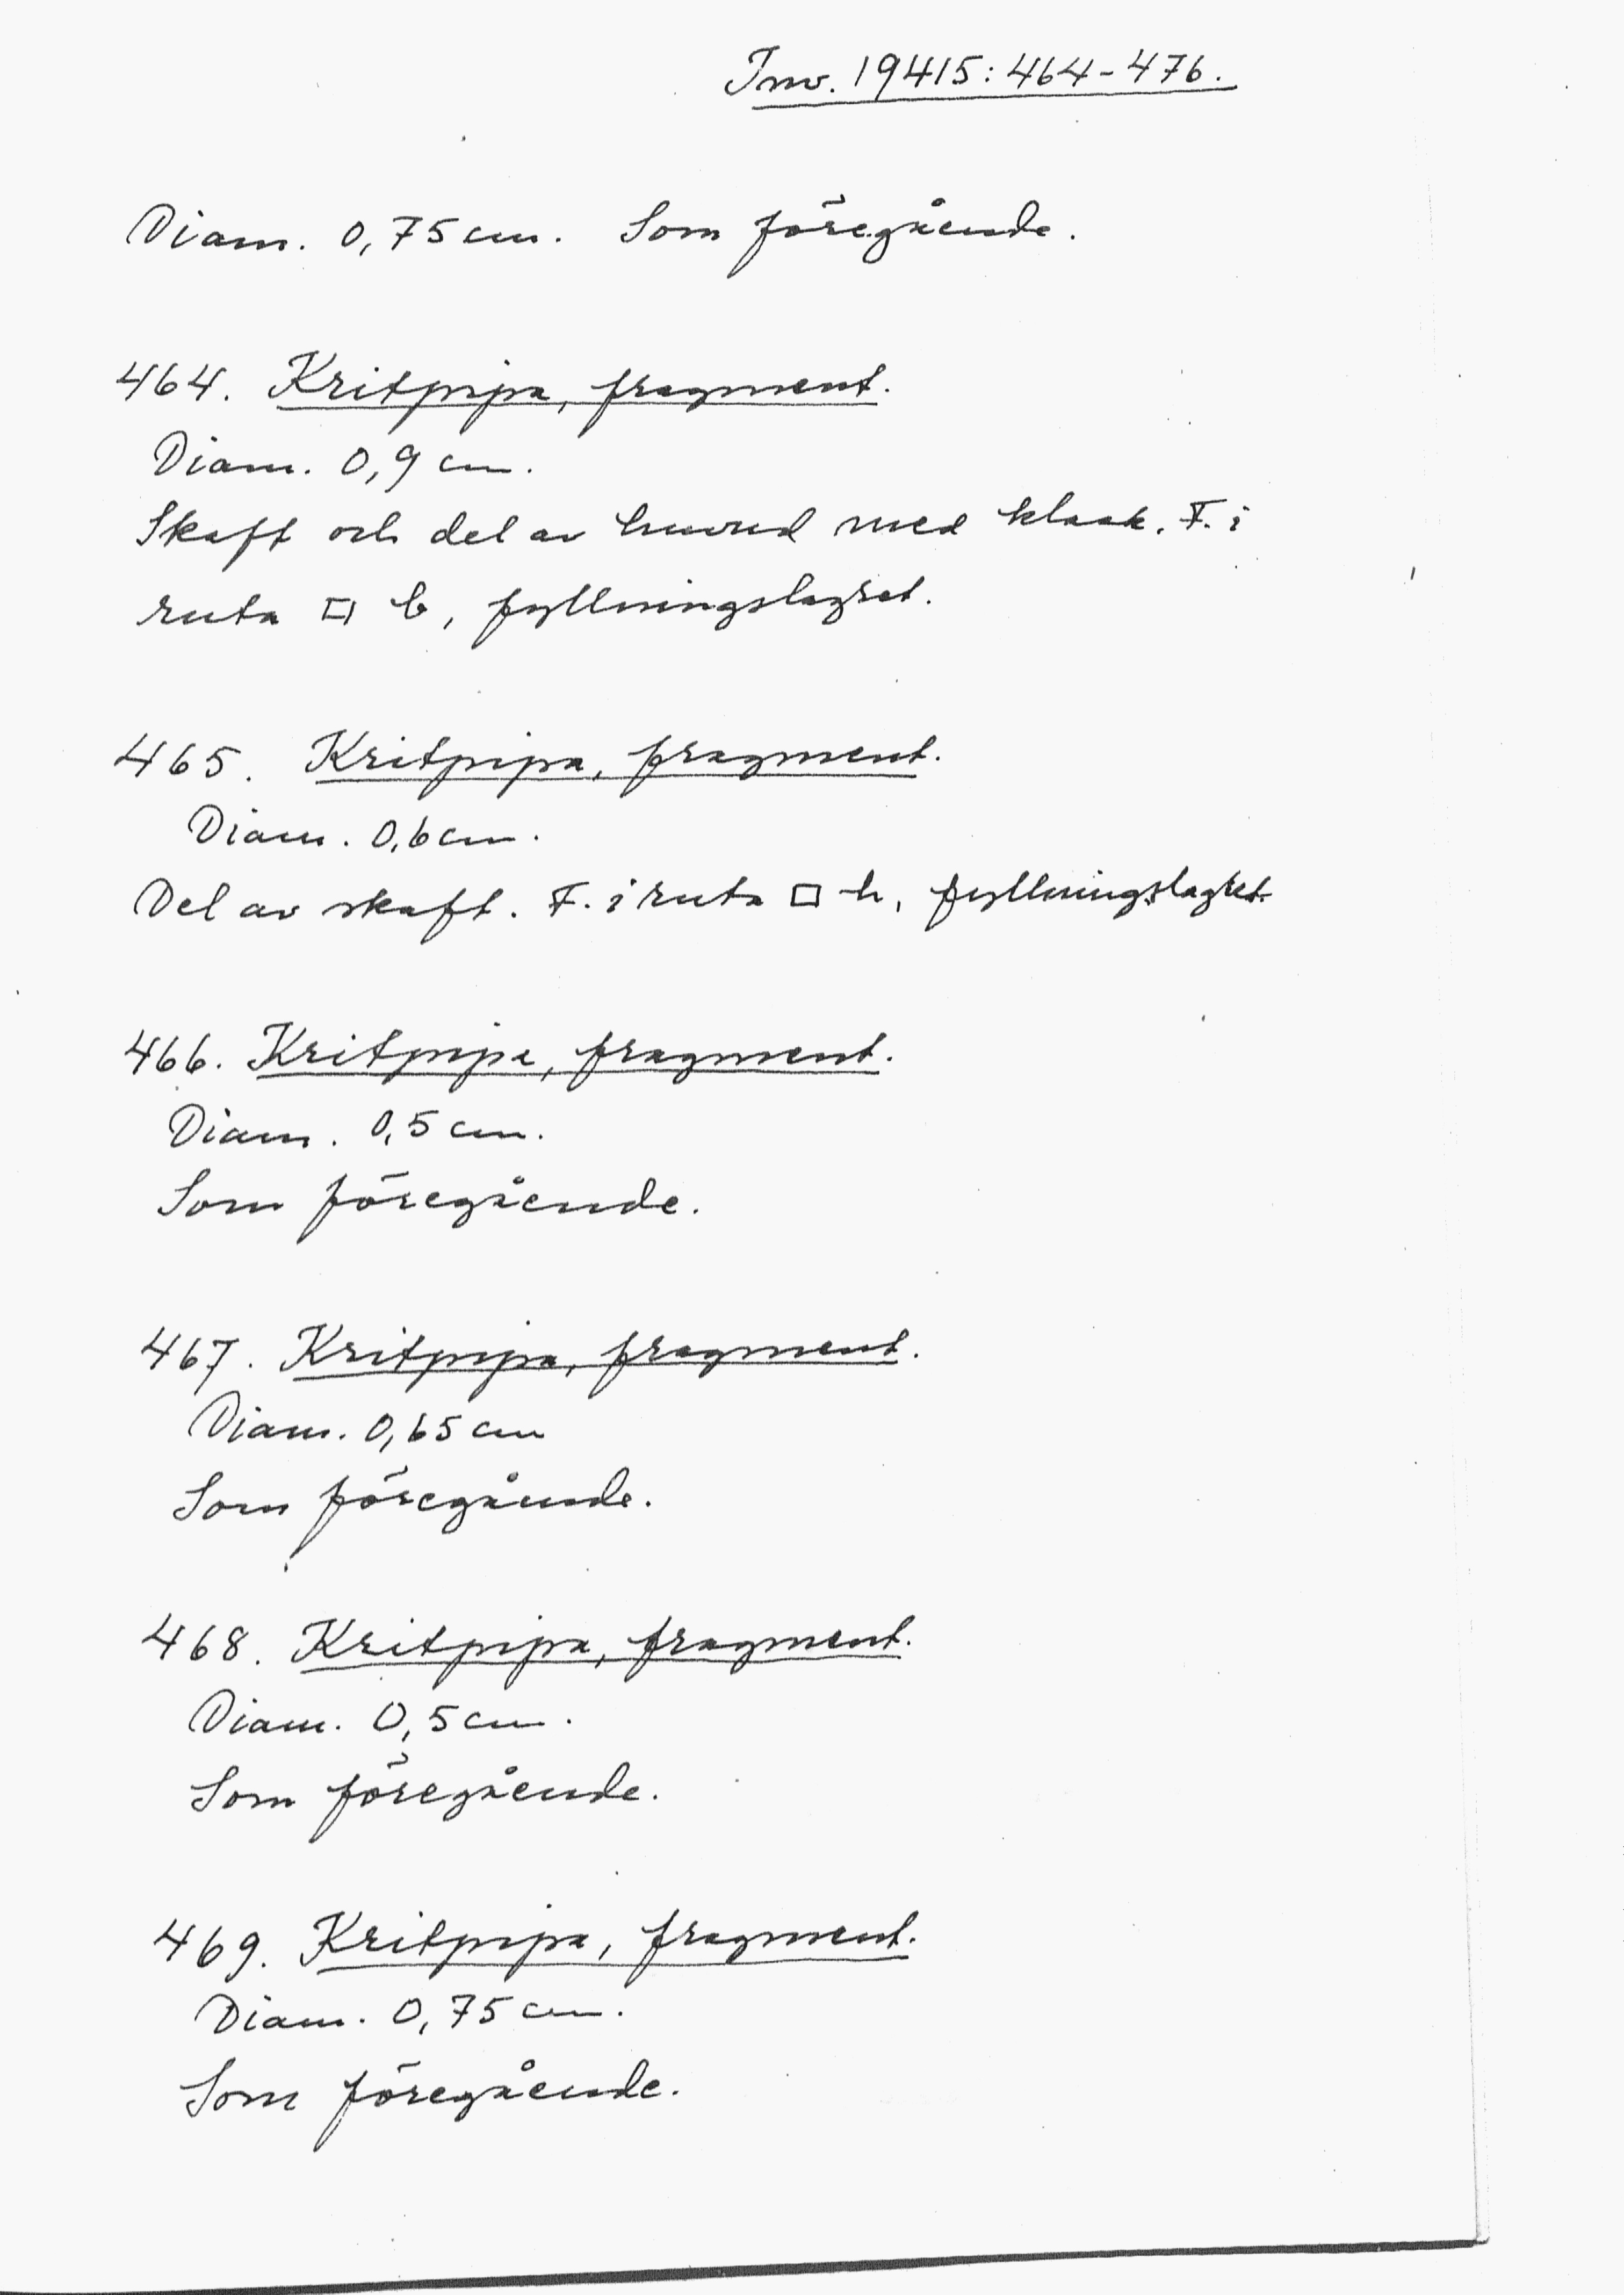 Inv. 19415:464-476.
Diam. 0,75 cm. Som föregående.
464. Kritpipa, fragment.
Diam. 0,9 cm.
Skaft och del av huvud med klack. F. i
ruta □ b, fyllningslagret.
465. Kritpipa, fragment.
Diam. 0,6 cm.
Del av skaft. F. i ruta □ h, fyllningslagret.
466. Kritpipa, fragment.
Diam. 0,5 cm.
Som föregående.
467. Kritpipa, fragment.
Diam. 0,65 cm
Som föregående.
468. Kritpipa, fragment.
Diam. 0,5 cm.
Som föregående.
469. Kritpipa, fragment.
Diam. 0,75 cm.
Som föregående.